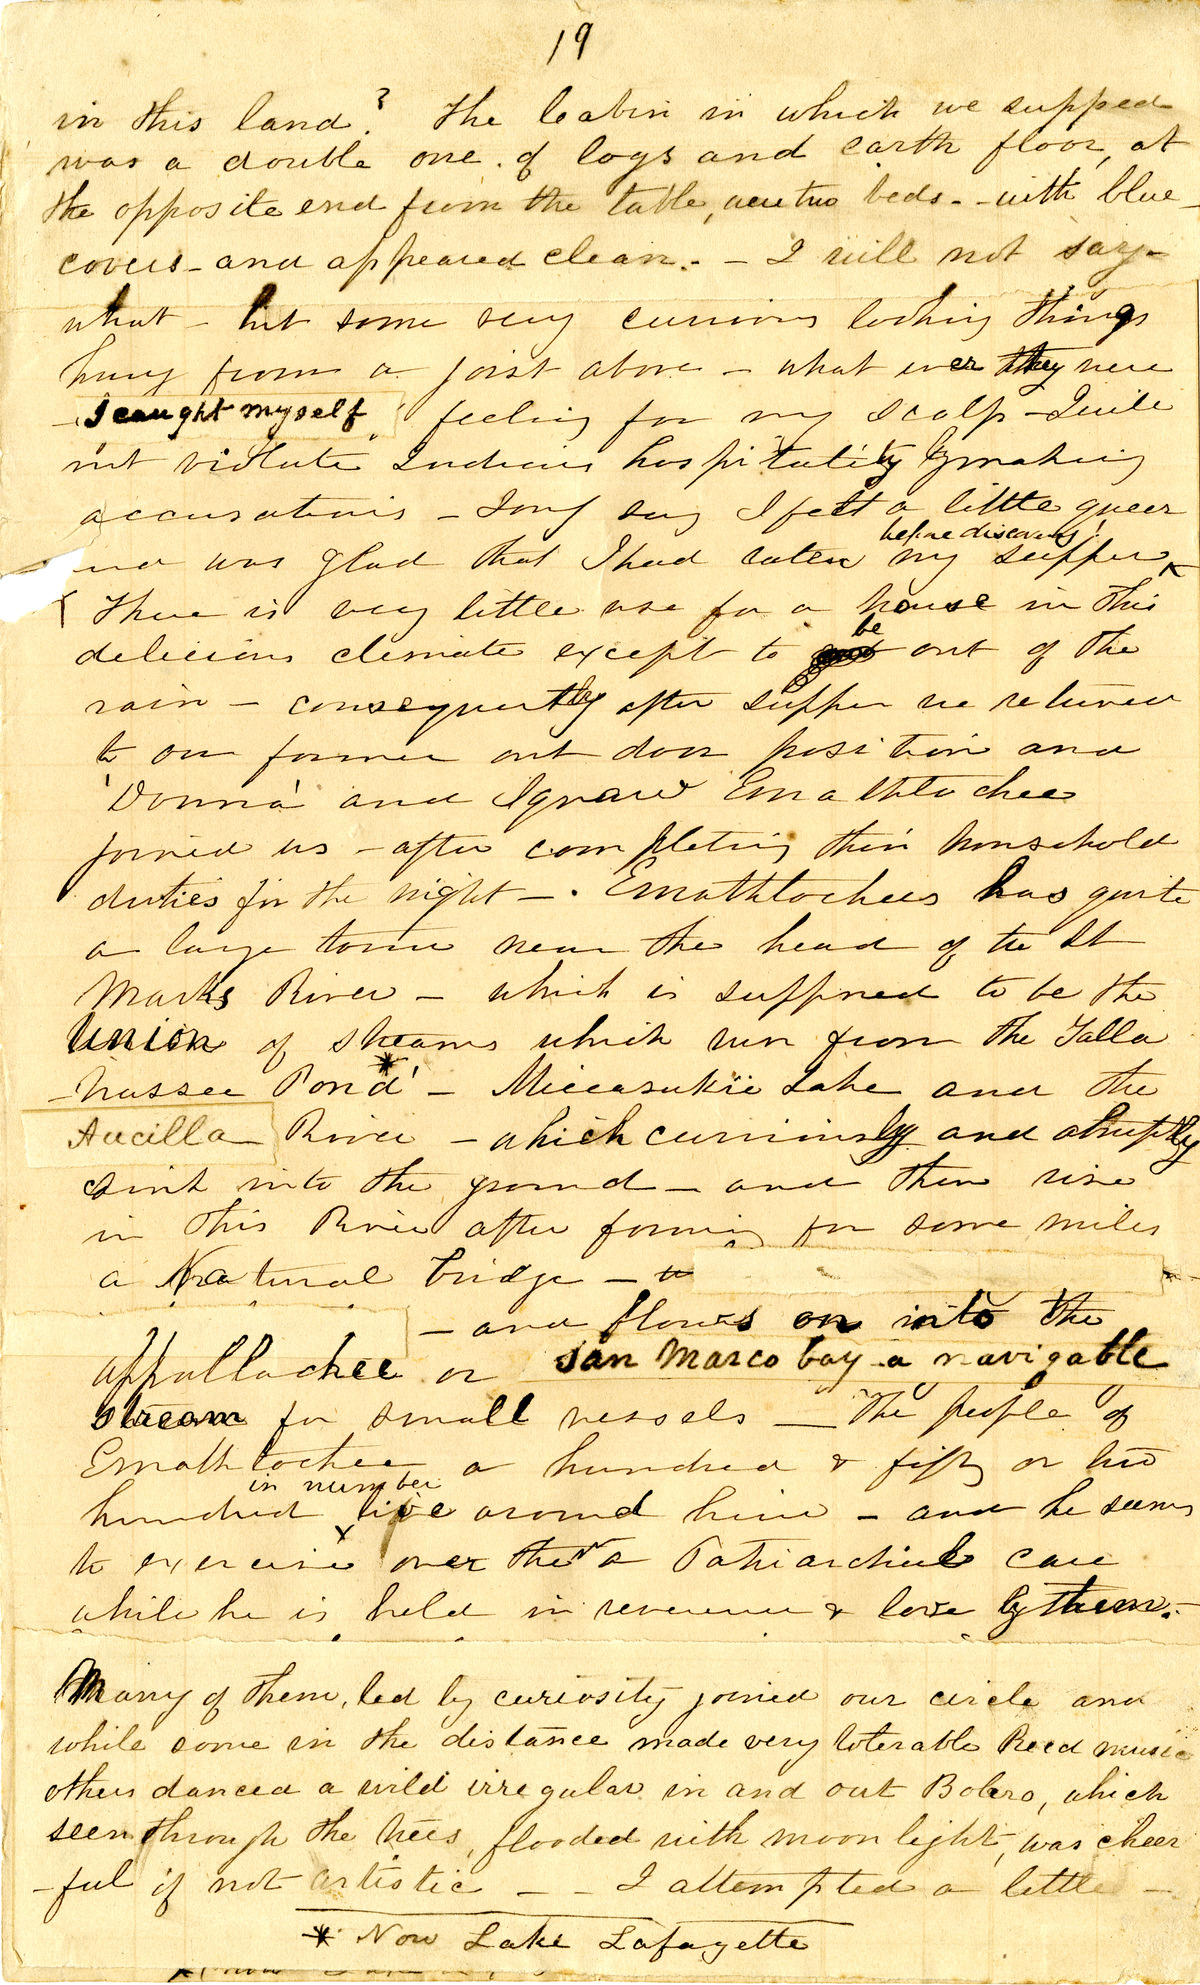 19
in this land? The cabin in which we supped
was a double one of logs and earth floor, at
the opposite end from the table, were two beds - with blue
covers - and appeared clean. - I will not say -
what - but some very curious looking things
hung from a joist above - what ever they were
- I caught myself feeling for my scalp - I will
not violate Indian hospitality by making
accusations - I only say I felt a little queer
and was glad that I had eaten my supper
before discovery!
There is very little use for a house in this
delicious climate except to be out of the
rain - consequently after supper we returned
to our former out door position and
'Donna' and Emathlochee
joined us - after completing their household
duties for the night - . Emathlochees has quite
a large town near the head of the St
Marks River - which is supposed to be the
Union of streams which run from the Talla
-hassee Pond* - Miccasukie Lake and the
Aucilla River - which curiously and abruptly
sink into the ground - and then rise
in this River after forming for some miles
a Natural bridge -
- and flows on into the
appallachee or San Marco bay - a navigable
stream for small vessels - The people of
Emathlochee a hundred & fifty or two
hundred in number live around him - and he seems
to exercise over them a Patriarchial care
while he is held in reverence & love by them. -
Many of them, led by curiosity joined our circle and
while some in the distance made very tolerable Reed music
others danced a wild irregular in and out Bolero, which
seen through the trees, flooded with moon light, was cheer
-ful if not artistic - - I attempted a little -
* Now Lake Lafayette